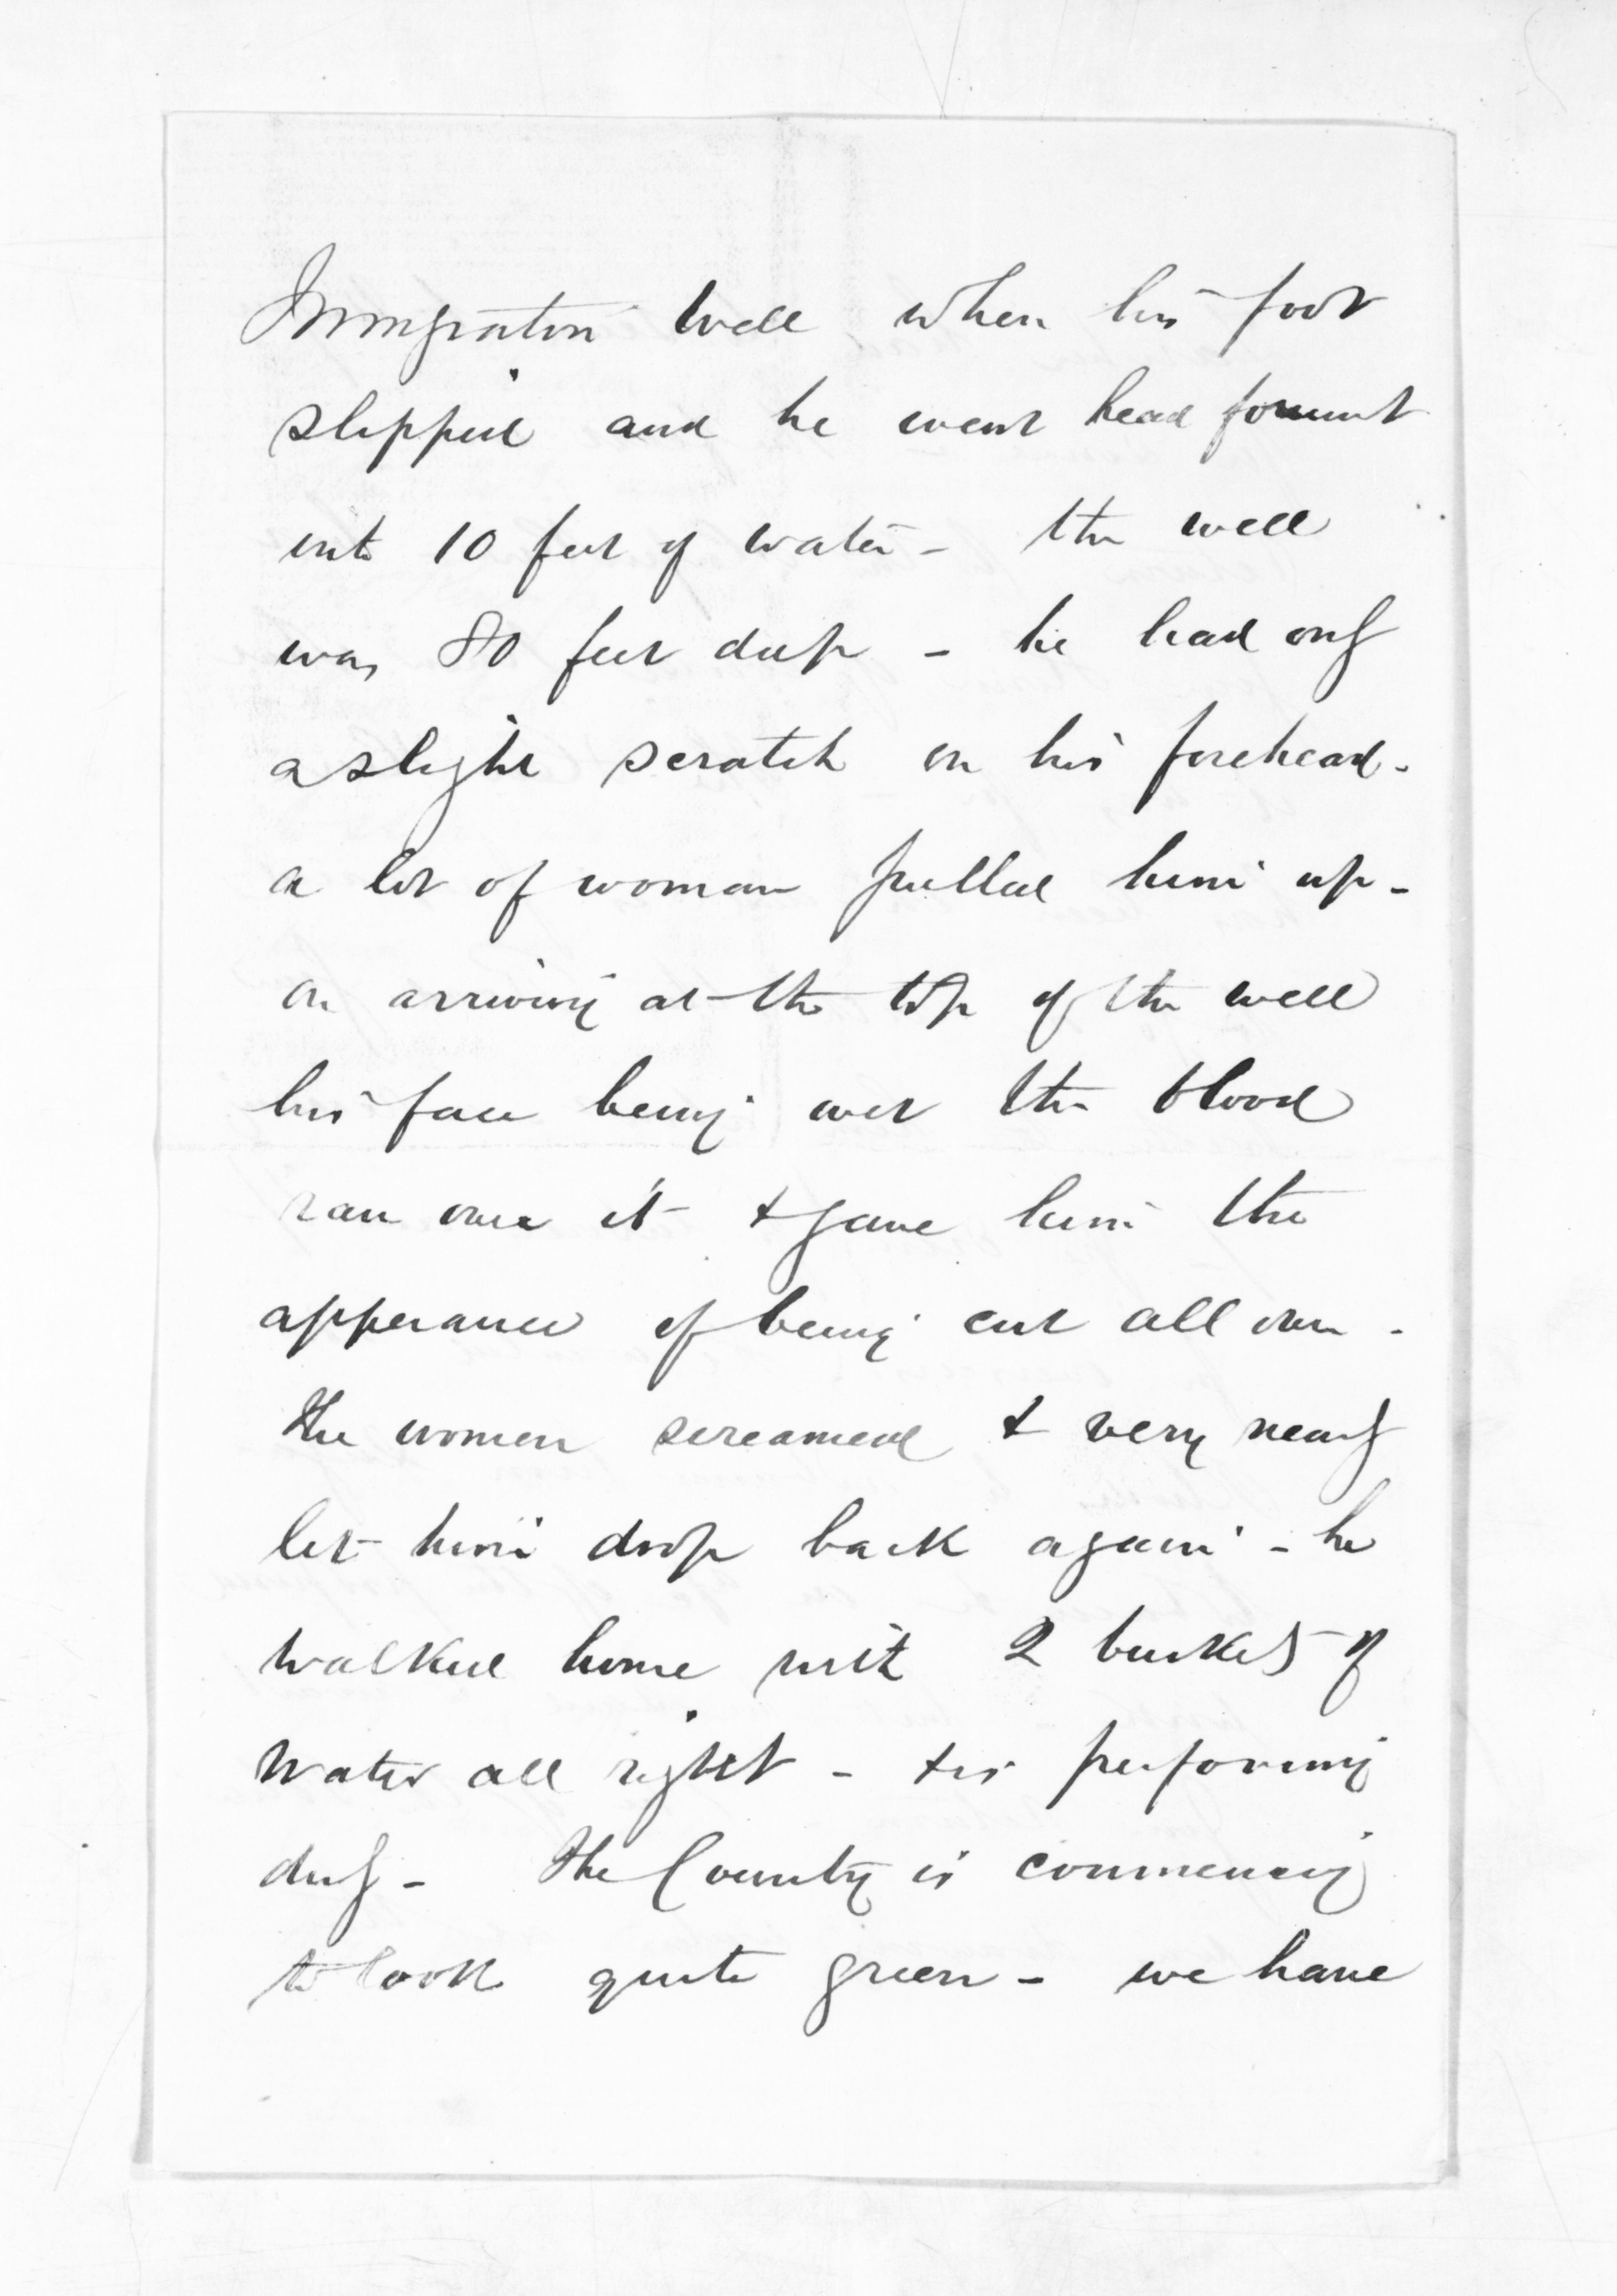 Immigration Well when his foot
slipped and he went head foremost
into 10 feet of water - the well
was 80 feet deep - he had only
a slight scratch on his forehead -
a lot of woman pulled him up -
on arriving at the top of the well
his face being wet the blood
ran over it & gave him the
apperance of being cut all over -
The women screamed & very nearly
let him drop back again - he
walked home with 2 buckets of
Water all right - & is performing
duty - The Country is commencing
to look quite green - we have